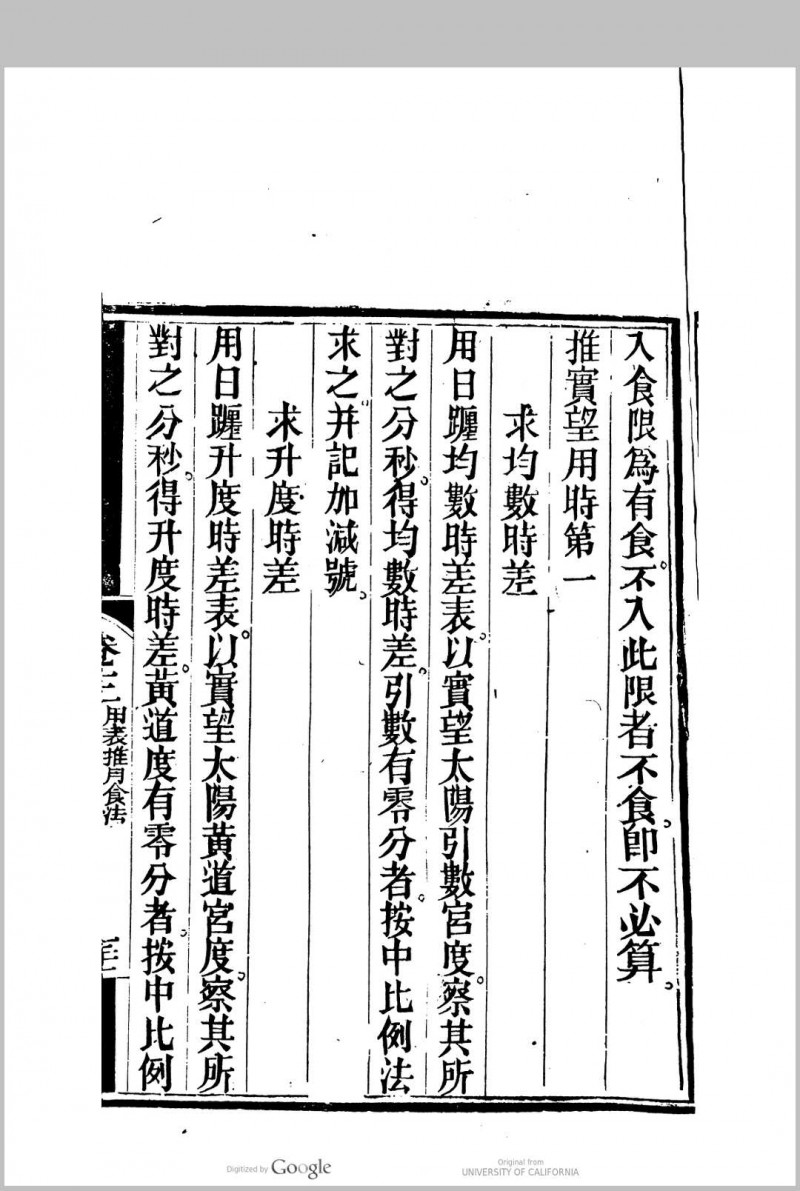 入食限爲有食。不入此限者不食。卽不必算。
推實望用時第一
求均數時差
用日躔均數時差表。以實望太陽引數宮度。察其所
對之分秒。得均數時差。引數有零分者。按中比例法
求之。幷記加減號。
求升度時差
用日躔升度時差表。以實望太陽黃道宮度。察其所
對之分秒。得升度時差。黃道度有零分者。按中比例
用表推月食法
Digitized by Google
Original from
UNIVERSITY OF CALIFORNIA